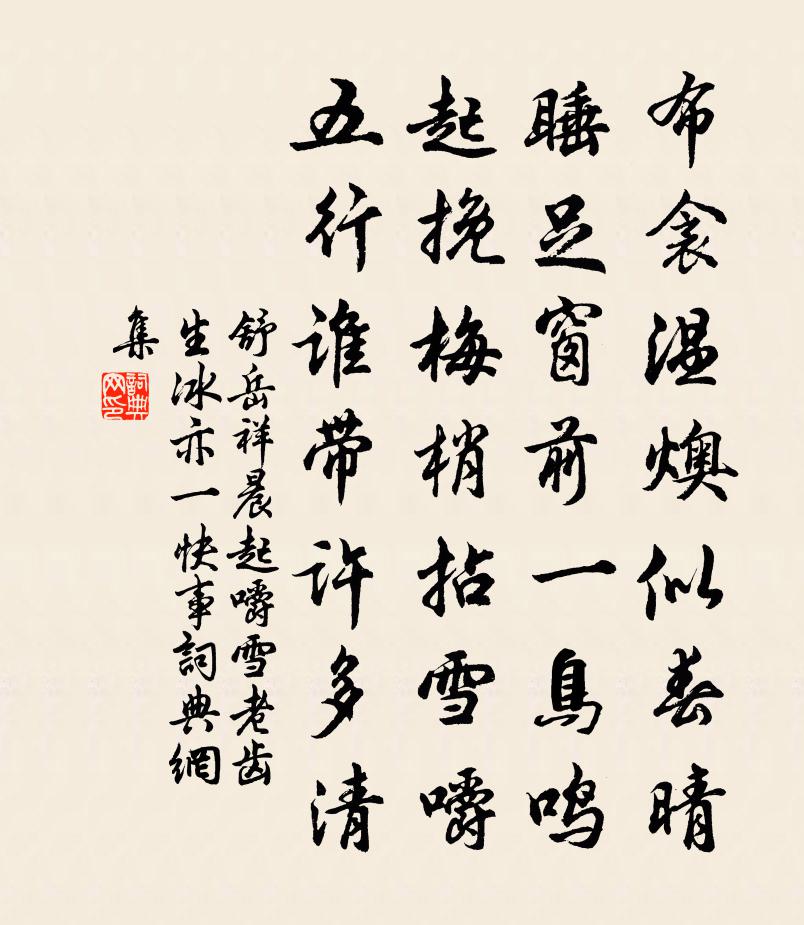 布衾温燠似春晴
睡足窗前一鳥鸣
起挽梅梢拈雪嚼
五行谁带許多清
舒岳祥晨起嚼雪老齒
生冰亦一快事詞典網
集
詞典
网印